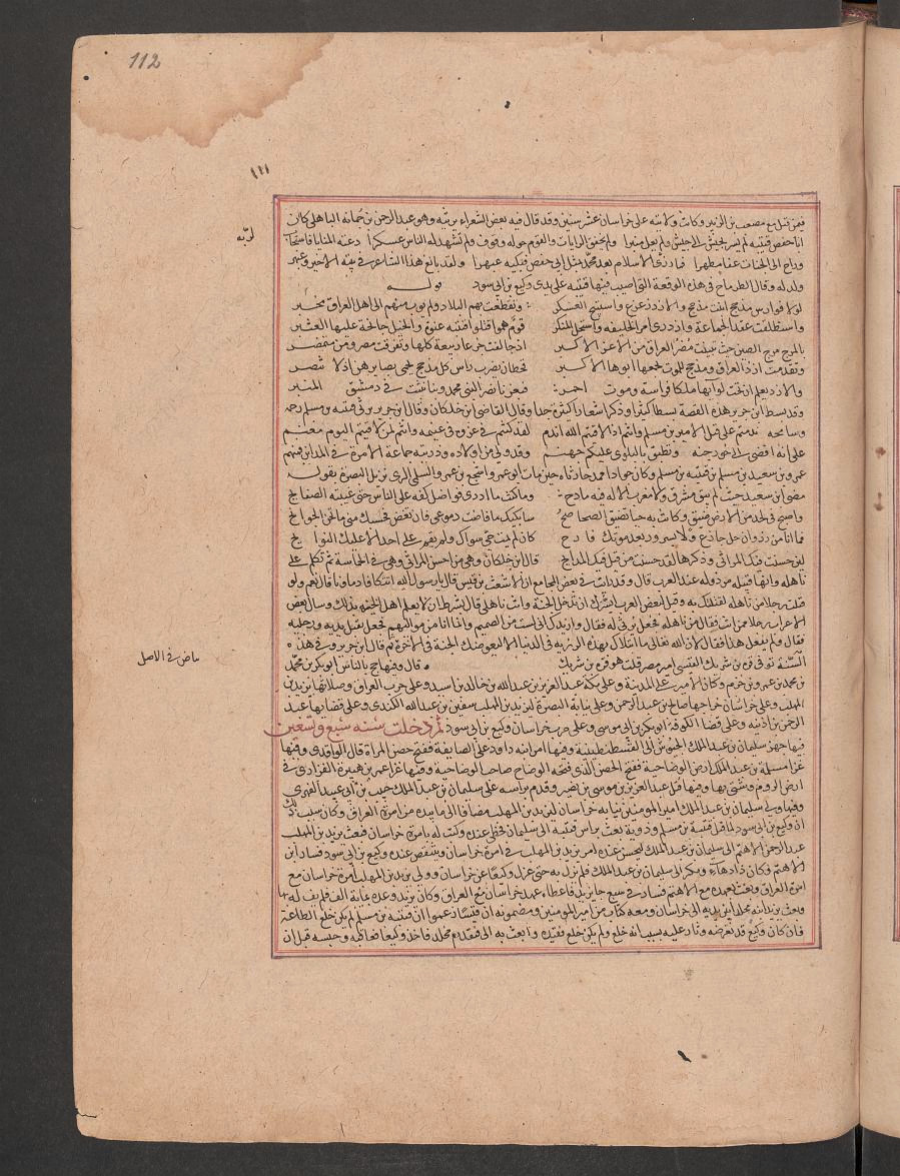 112
١١١
فيمن قتل مع مصعب بن الزبير وكانت ولايته على خراسان عشر سنين وقد قال فيه بعض الشعراء يرثيه وهو عبد الرحمن بن جمانه الباهلي
كان ابا حفص قتيبه لم يسر بجيش الى جيش ولم يعل منبرا ولم تخفق الرايات والقوم حوله وقوف ولم تشهد له الناس عسكرا دعته المنايا
وراح الى الجنات عفا مطهرا فما رزئ الاسلام بعد محمد بمثل ابي حفص فبكيه عبهرا ولقد بالغ هذا الشاعر في بيته الاخير وعبهر
ولد له وقال الطرماح في هذه الوقعة التي اصيب فيها قتيبه على يدي وكيع بن ابي سود
لولا فوارس مذحج ابنت مذحج والازد زعزع واستبيح العسكر وتقطعت بهم البلاد ولم يوب منهم الى اهل العراق مخبر
واستظلعت عقد الجماعة وازدري امر الخليفه واستحل المنكر قوم هموا قتلوا قتيبه عنوة والخيل جانحة عليها العثير
بالمرج مرج الصين حيث تبينت مضر العراق من الاعز الاكبر اذ حالفت جزعا ربيعة كلها وتفرقت مضر ومن يتمضر
وتقدمت ازد العراق ومذحج للموت يجمعها ابوها الاكبر قحطان تضرب راس كل مذحج
والازد تعلم ان تحت لوائها ملكا قراسية وموت احمر فبعزنا نصر النبي محمد وبنا تثبت في دمشق المنبر
وقد بسط ابن جرير هذه القصة بسطا كثيرا وذكر اشعارا كثيرة جدا وقال القاضي ابن خلكان وقال ابن جرير يرثي قتيبه بن مسلم رحمه
وسامحه ندمتم على قتل الامير بن مسلم وانتم اذا لاقيتم الله اندم لقد كنتم في غزوه في غنيمه وانتم لمن لاقيتم اليوم مغنم
على انه افضى الى حور جنه وتطبق بالبلوى عليكم جهنم وقد ولى من اولاده وذريته جماعة الامرة في البلدان فمنهم
عمرو بن سعيد بن مسلم بن قتيبه بن مسلم وكان جوادا ممدحا رثاه حين مات ابو عمرو اشجع بن عمرو السلمي نزيل البصرة بقوله
مضى ابن سعيد حيث لم يبق مشرق ولا مغرب الا له فيه مادح وما كنت ادري ما فواضل كفه على الناس حتى غيبته الصفايح
واصبح في لحد من الارض ضيق وكانت به حيا تضيق الصحاصح سابكيك ما فاضت دموعي فان تغض فحسبك مني ما تجن الجوانح
فما انا من رزء وان جل جازع ولا بسرور بعد موتك فارح كان لم يمت حي سواك ولم تقم على احد الا عليك النوايح
لين حسنت فيك المراثي وذكرها لقد حسنت من قبل فيك المدايح قال ابن خلكان وهي من احسن المراثي وهي في الحماسة ثم تكلم على
باهله وانها قبيله مرذوله عند العرب قال وقد رايت في بعض المجاميع ان الاشعث بن قيس قال يا رسول الله اتتكافا دماونا قال نعم ولو
قتلت رجلا من باهله لقتلتك به وقيل لبعض العرب ايسرك ان تدخل الجنة وانت باهلي قال بشرط ان لا يعلم اهل الجنه بذلك وسال بعض
الاعراب رجلا ممن انت فقال من باهله فجعل يرثي له فقال وازيدك اني لست من الصميم وانما انا من مواليهم فجعل يقبل يديه ورجليه
فقال ولم تفعل هذا فقال لان الله تعالى ما ابتلاك بهذه الرزيه في الدنيا الا ليعوضك الجنة في الاخرة ثم قال ابن جرير وفي هذه
السنة توفي قرة بن شريك القيسي امير مصر قلت هو قرة بن شريك قال وفيها حج بالناس ابو بكر بن محمد
بياض في الاصل
بن محمد بن عمرو بن حزم وكان الامير على المدينة وعلى مكة عبد العزيز بن عبد الله بن خالد بن اسيد وعلى حرب العراق وصلاتها يزيد بن
المهلب وعلى خراجها صالح بن عبد الرحمن وعلى نيابة البصرة ليزيد بن المهلب سفين بن عبد الله الكندي وعلى قضايها عبد
الرحمن بن اذينه وعلى قضا الكوفة ابو بكر بن ابي موسى وعلى حرب خراسان وكيع بن ابي سود ثم دخلت سنه سبع وتسعين
فيها جهز سليمان بن عبد الملك الجيوش الى القسطنطينية وفيها امر ابنه داود على الصايفة ففتح حصن المراة قال الواقدي وفيها
غزا مسلمة بن عبد الملك ارض الوضاحية ففتح الحصن الذي فتحه الوضاح صاحب الوضاحية وفيها غزا عمر بن هبيرة الفزاري في
ارض الروم وشتى بها وفيها قتل عبد العزيز بن موسى بن نصير وقدم براسه على سليمان بن عبد الملك حبيب بن ابي عبيد الفهري
وفيها ولى سليمان بن عبد الملك امير المومنين نيابة خراسان ليزيد بن المهلب مضافا الى ما بيده من امرة العراق وكان سبب ذلك
ان وكيع بن ابي سود لما قتل قتيبة بن مسلم وذويه بعث براس قتيبه الى سليمان فحظي عنده وكتب له بامرة خراسان فبعث يزيد بن المهلب
عبد الرحمن الاهتم الى سليمان بن عبد الملك ليحسن عنده امر يزيد بن المهلب في امرة خراسان وينتقص عنده وكيع بن ابي سود فسار ابن
الاهتم وكان ذا دهاء ومكر الى سليمان بن عبد الملك فلم يزل به حتى عزل وكيعا عن خراسان وولى يزيد بن المهلب امرة خراسان مع
امرة العراق وبعث بعهده مع ابن الاهتم فسار في سبع حتى جاء يزيد فاعطاه عهد خراسان مع العراق وكان يزيد وعده بماية الف فلم يف له بها
وبعث يزيد ابنه مخلدا بين يديه الى خراسان ومعه كتاب من امير المومنين ومضمونه ان قيسا زعموا ان قتيبه بن مسلم لم يكن خلع الطاعة
فان كان وكيع قد تعرضه وثار عليه بسبب انه خلع ولم يكن خلع فقيده وابعث به الي فتقدم مخلد فاخذ وكيعا فعاقبه وحبسه قبل ان